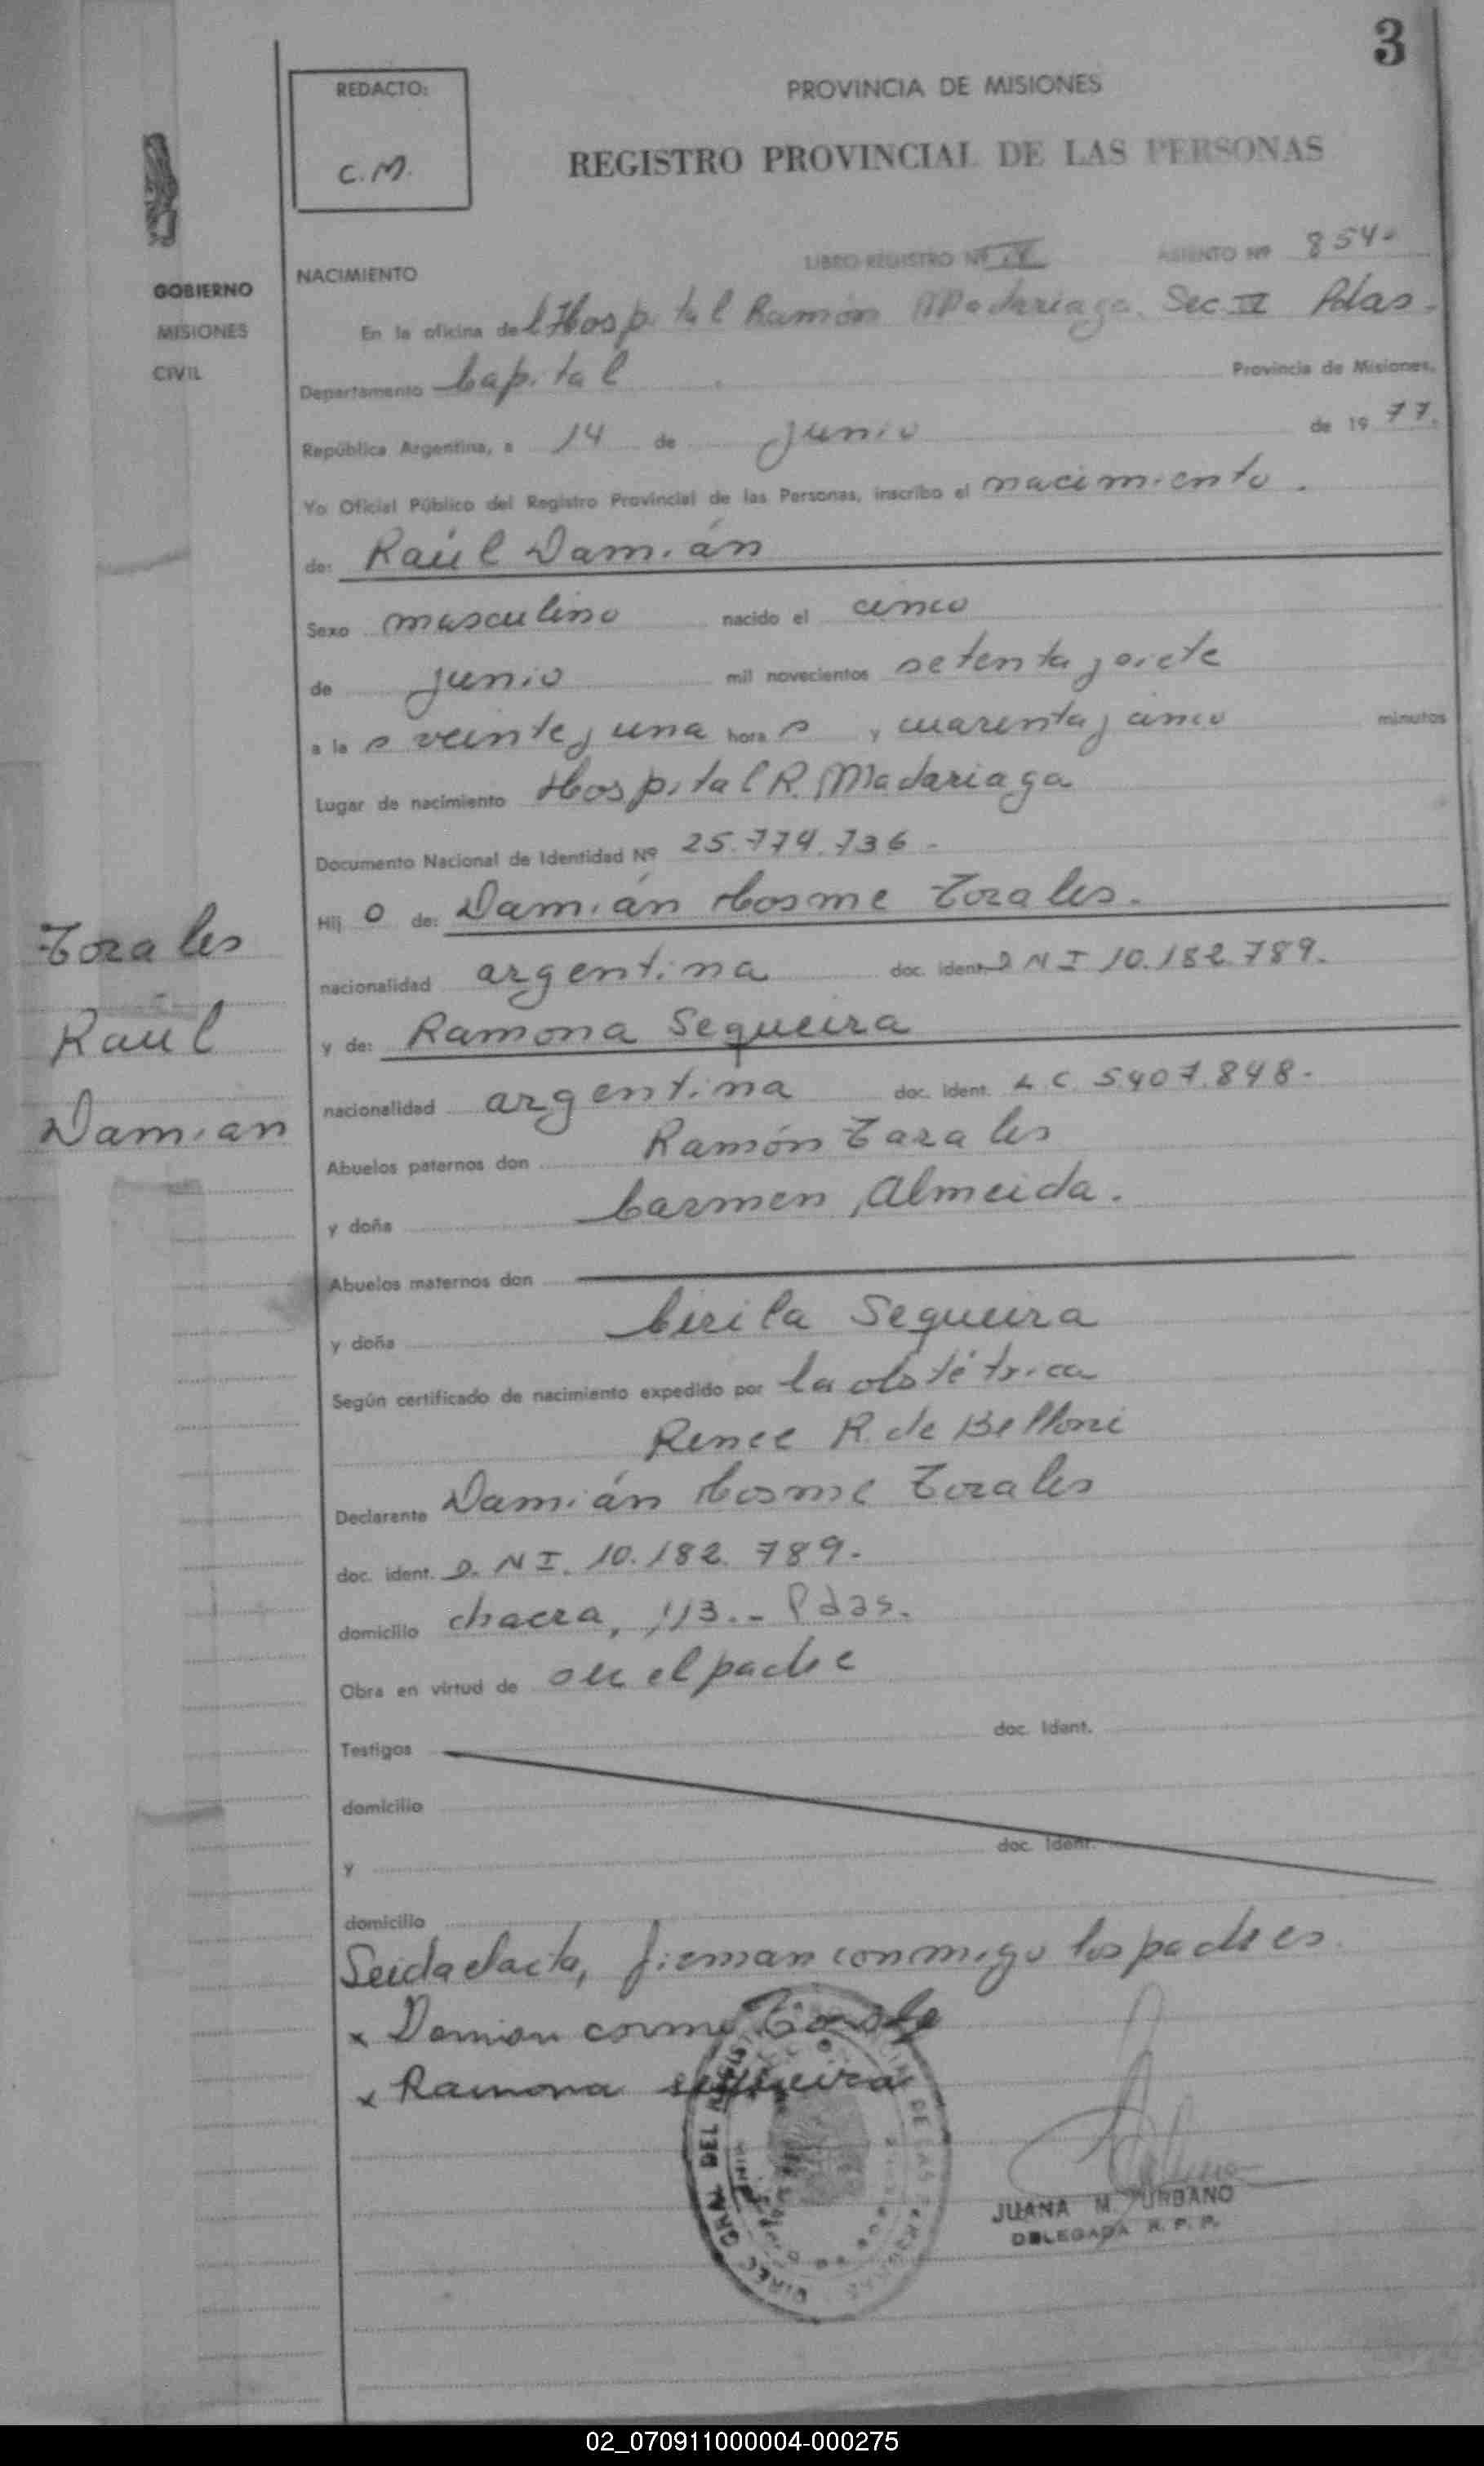 3
REDACTO:
C.M.
PROVINCIA DE MISIONES
REGISTRO PROVINCIAL DE LAS PERSONAS
GOBIERNO
MISIONES
CIVIL
NACIMIENTO
LIBRO REGISTRO Nº IV ASIENTO Nº 854-
En la oficina del Hospital Ramón Madariaga. Sec. IV Pdas.
Departamento Capital Provincia de Misiones,
República Argentina, a 14 de junio de 1977.
Yo Oficial Público del Registro Provincial de las Personas, inscribo el nacimiento.
de: Raúl Damián
Sexo masculino nacido el cinco
de junio mil novecientos setenta y siete
a las veinte y una horas y cuarenta y cinco minutos
Lugar de nacimiento Hospital R. Madariaga
Documento Nacional de Identidad Nº 25.774.736-
Hijo de: Damián Cosme Torales.
nacionalidad argentina doc. ident. DNI 10.182.789.
y de: Ramona Sequeira
nacionalidad argentina doc. ident. L C 5.407.848-
Torales
Raúl
Damian
Abuelos paternos don Ramón Torales
y doña Carmen Almeida.
Abuelos maternos don
y doña Cirila Sequeira
Según certificado de nacimiento expedido por la obstétrica
Renee R. de Belloni
Declarante Damián Cosme Torales
doc. ident. D.NI. 10.182.789-
domicilio chacra, 113.- Pdas.
Obra en virtud de ser el padre
Testigos doc. Ident.
domicilio
y doc. Ident.
domicilio
Leida el acta, firman conmigo los padres.
x Damian cosme Torales
x Ramona sequeira
JUANA M. URBANO
DELEGADA R. P. P.
02_070911000004-000275